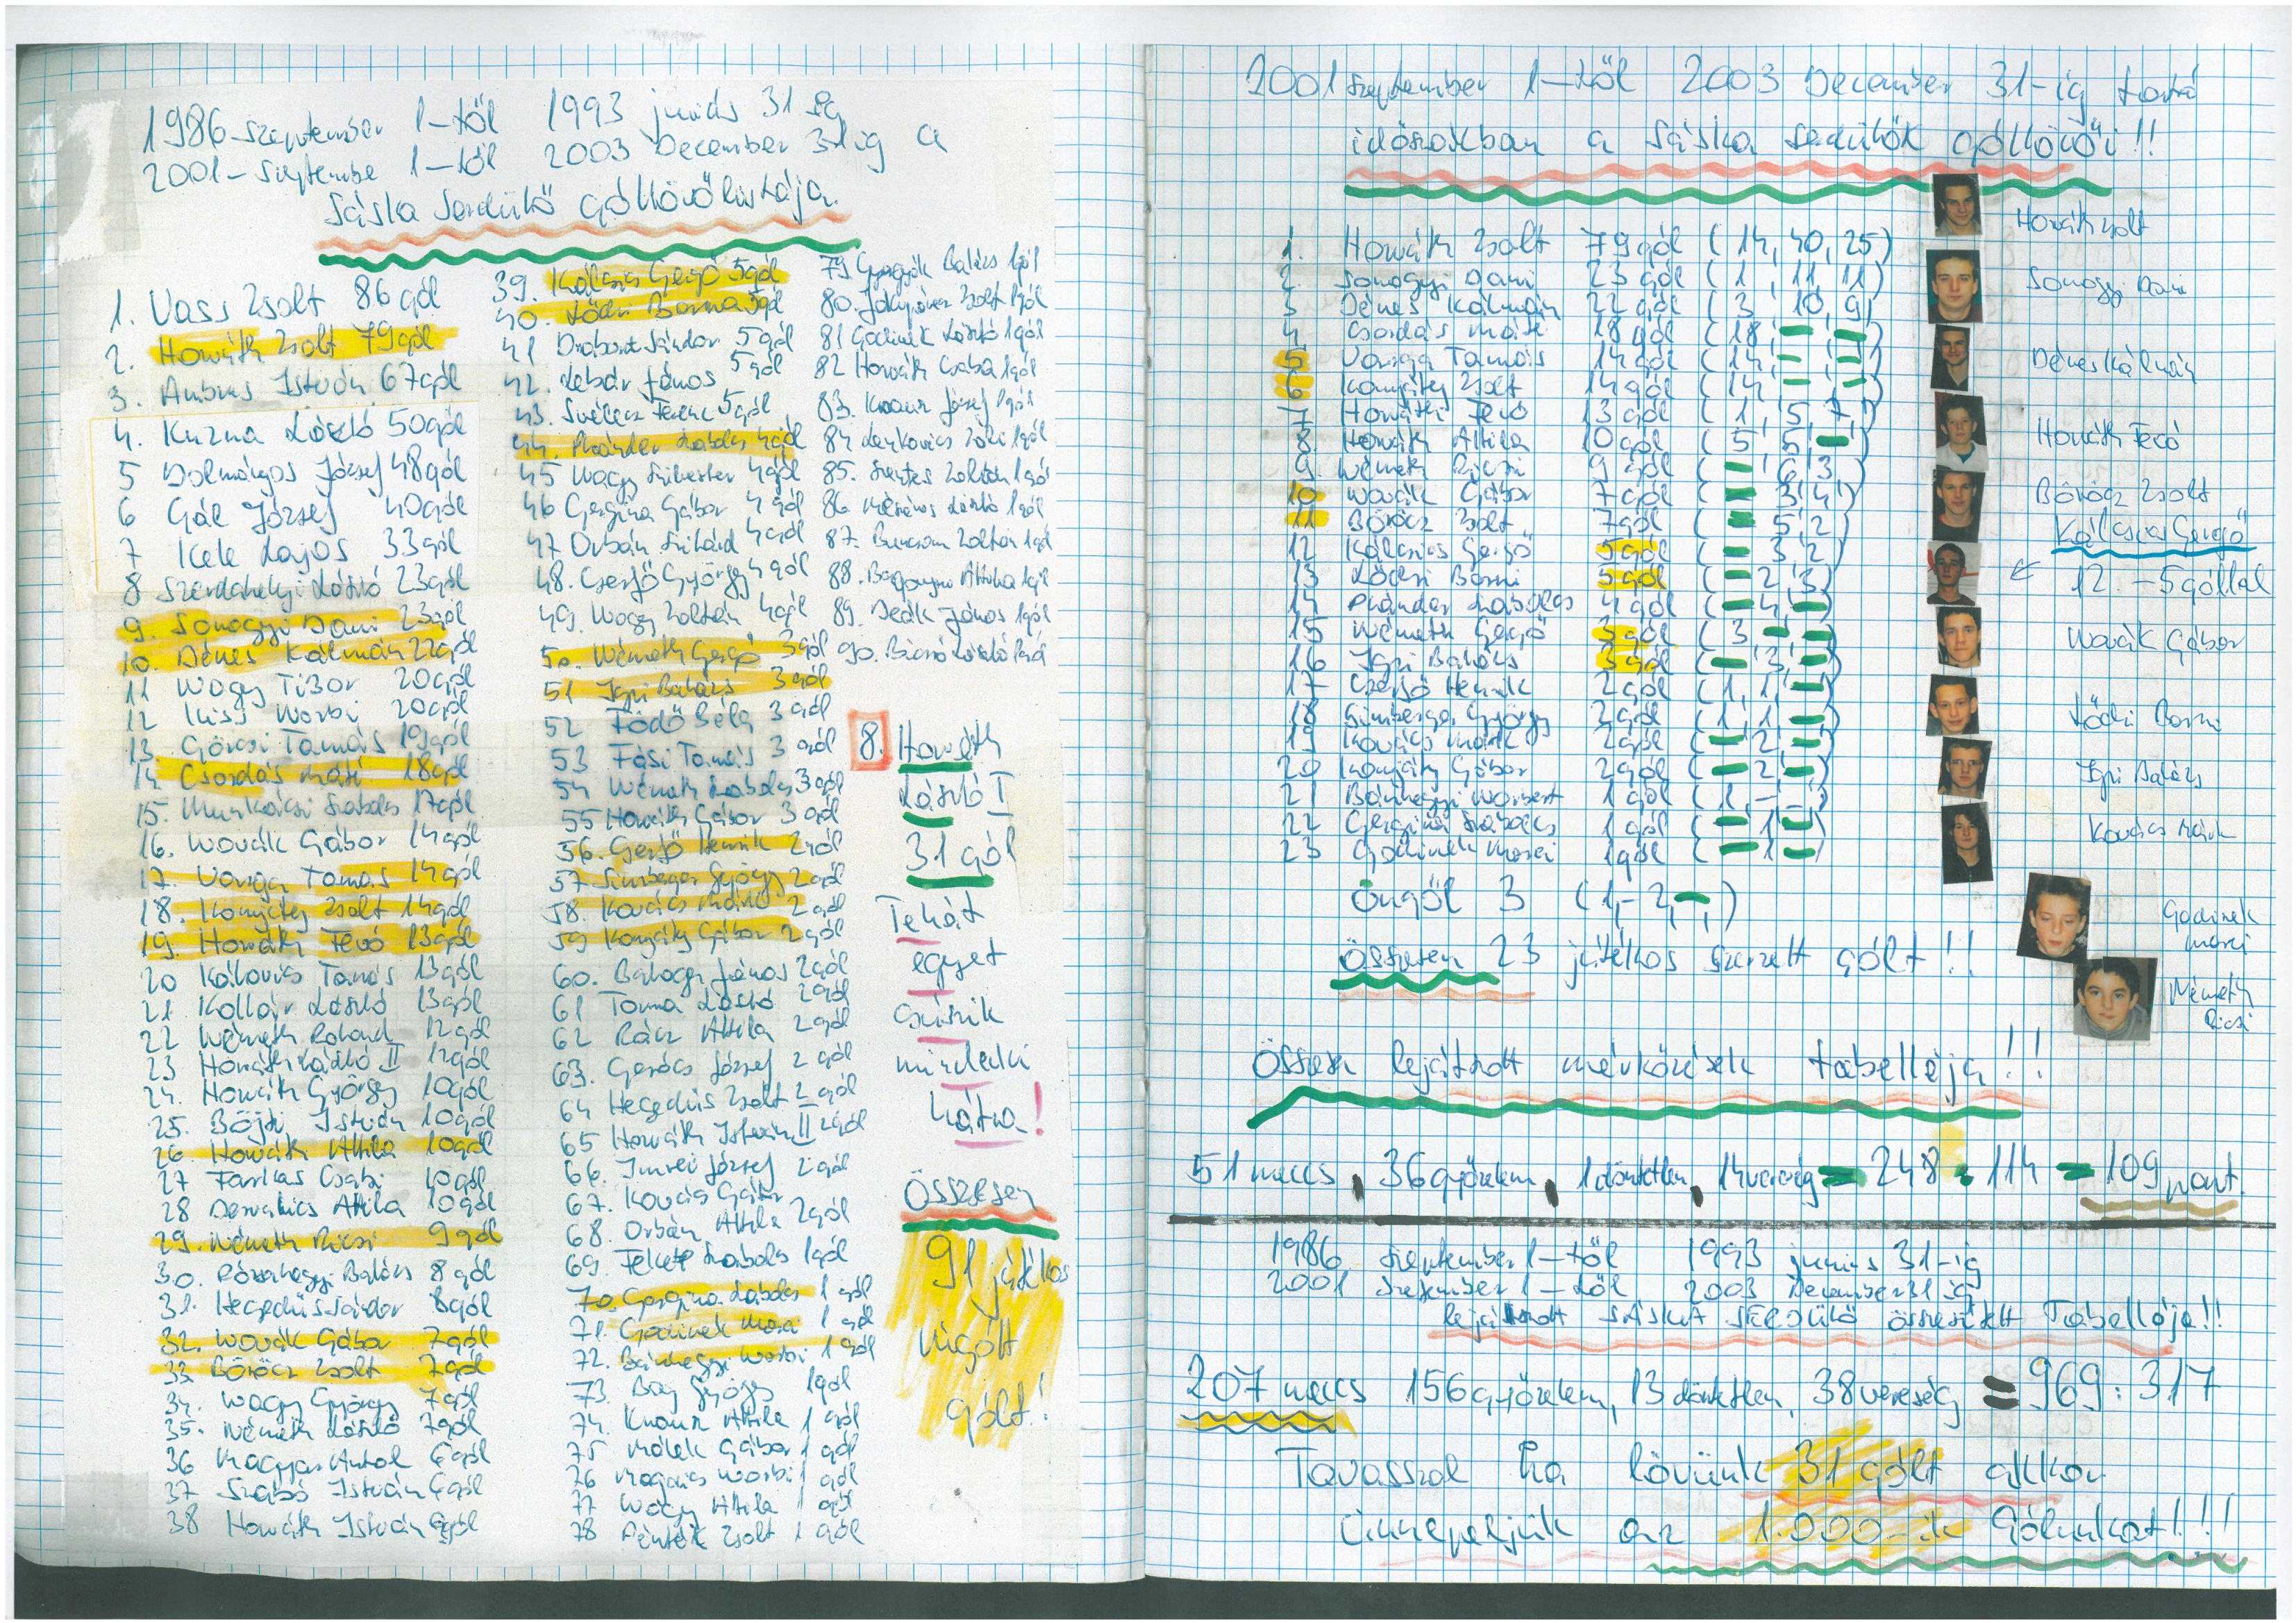 1986-szeptember 1-től 1993 június 31 ig
2001-szeptembe 1-től 2003 December 31 ig a
Sáska Serdülő góllövőlistája.
1. Vass Zsolt 86 gól
2. Horváth Zsolt 79gól
3. Ambrus István 67gól
4. Kuzma László 50gól
5 Dolmányos József 48gól
6 Gál József 40gól
7 Kele Lajos 33gól
8 Szerdahelyi László 23gól
9. Somogyi Dani 23gól
10. Dénes Kálmán 22gól
11 Nagy Tibor 20gól
12 Kiss Norbi 20gól
13. Göcsi Tamás 19gól
14 Csordás Máté 18gól
15. Munkácsi Szabolcs 17gól
16. Novák Gábor 14gól
17. Varga Tamás 14gól
18. Konyáty Zsolt 14gól
19. Horváth Fecó 13gól
20 Kálovics Tamás 13gól
21. Kollár László 13gól
22 Németh Roland 12gól
23 Horváth László II 12gól
24. Horváth György 10gól
25. Böjti István 10gól
26. Horváth Attila 10gól
27 Farkas Csabi 10gól
28 Dervalics Attila 10gól
29. Németh Ricsi 9gól
30. Rózsahegyi Balázs 8 gól
31. Hegedüs Sándor 8gól
32. Novák Gábor 7gól
33 Böröcz Zsolt 7gól
34. Nagy György 7gól
35. Németh László 7gól
36 Magyar Antal 6gól
37 Szabó István 6gól
38 Horváth István 6gól
39. Kálcsics Gergő 5gól
40. Lődri Barna 5gól
41 Drabant Sándor 5gól
42. Lebár János 5gól
43. Ferenc 5gól
44. Szabolcs 4gól
45 Nagy Szilveszter 4gól
46 Gergina Gábor 4 gól
47 Orbán Szilárd 4gól
48. Cserfő György 4gól
49. Nagy Zoltán 4gól
50. Németh Gergő 3gól
51 Igri Balázs 3 gól
52 Födő Béla 3 gól
53 Fási Tamás 3 gól
54 Németh Szabolcs 3gól
55 Horváth Gábor 3 gól
56. Cserfő Henrik 2gól
57 György 2gól
58. Kovács Márk 2 gól
59 Konyáty Gábor 2gól
60. Balogh János 2gól
61 Torma László 2gól
62 Rácz Attila 2gól
63. József 2 gól
64 Hegedüs Zsolt 2 gól
65 Horváth István II 2gól
66. Imrei József 2 gól
67. Kovács Gábor
68. Orbán Attila 2gól
69. Fekete Szabolcs 1gól
70. Gergina Szabolcs 1 gól
71. Godinek Marci 1 gól
72. Bánhegyi Norbi 1 gól
73. Bag György 1gól
74. Knaur Attila 1 gól
75 Málek Gábor 1 gól
76 Norbi 1 gól
77 Nagy Attila 1 gól
78 Péntek Zsolt 1 gól
79 Balázs 1gól
80. Zsolt 1gól
81 Godinek László 1gól
82 Horváth Csaba 1gól
83. Knaur József 1gól
84 Lenkovics Zoli 1gól
85. Szentes Zoltán 1gól
86 Mészáros László 1gól
87. Zoltán 1gól
88. Attila 1gól
89. Deák János 1gól
90. László 1gól
8. Horváth
László I
31 gól
Tehát
egyet
csúszik
mindenki
hátra!
Összesen
91 játékos
rúgott
gólt!
2001 szeptember 1-től 2003 December 31-ig tartó
időszakban a Sáska Serdülők góllövői!!
1. Horváth Zsolt 79gól (14, 40, 25)
2. Somogyi Dani 23gól (1, 11, 11)
3 Dénes Kálmán 22gól (3, 10, 9)
4 Csordás Máté 18gól (18, -, -)
5 Varga Tamás 14gól (14, -, -)
6 Konyáty Zsolt 14gól (14, -, -)
7 Horváth Fecó 13gól (1, 5, 7)
8 Horváth Attila 10gól (5, 5, -)
9. Németh Ricsi 9 gól (-, 6, 3)
10 Novák Gábor 7gól (-, 3, 4)
11 Böröcz Zsolt 7gól (-, 5, 2)
12 Kálcsics Gergő 5gól (-, 3, 2)
13 Lődri Barni 5gól (-, 2, 3)
14 Szabolcs 4 gól (-, 4, -)
15 Németh Gergő 3gól (3, -, -)
16 Igri Balázs 3gól (-, 3, -)
17 Cserfő Henrik 2gól (1, 1, -)
18 György 2gól (1, 1, -)
19 Kovács Márk 2gól (-, 2, -)
20 Konyáty Gábor 2gól (-, 2, -)
21 Bánhegyi Norbert 1 gól (1, -, -)
22 Gergina Szabolcs 1 gól (-, 1, -)
23 Godinek Marci 1gól (-, 1, -)
Öngól 3 (1,- 2, -,)
Összesen 23 játékos szerzett gólt!!
Horváth Zsolt
Somogyi Dani
Dénes Kálmán
Horváth Fecó
Böröcz Zsolt
Kálcsics Gergő
12. - 5 góllal
Novák Gábor
Lődri Barni
Igri Balázs
Kovács Márk
Godinek
Marci
Németh
Ricsi
Összes lejátszott mérkőzések tabellája!!
51 meccs, 36 győzelem, 1 döntetlen, 14 vereség = 248 : 114 = 109 pont.
1986 szeptember 1-től 1993 junius 31-ig
2001 szeptember 1-től 2003 December 31 ig
lejátszott SÁSKA SERDÜLŐ összesített Tabellája!!
207 meccs 156 győzelem, 13 döntetlen, 38 vereség = 969 : 317
Tavasszal ha lövünk 31 gólt akkor
ünnepeljük az 1.000-ik Gólunkat!!!